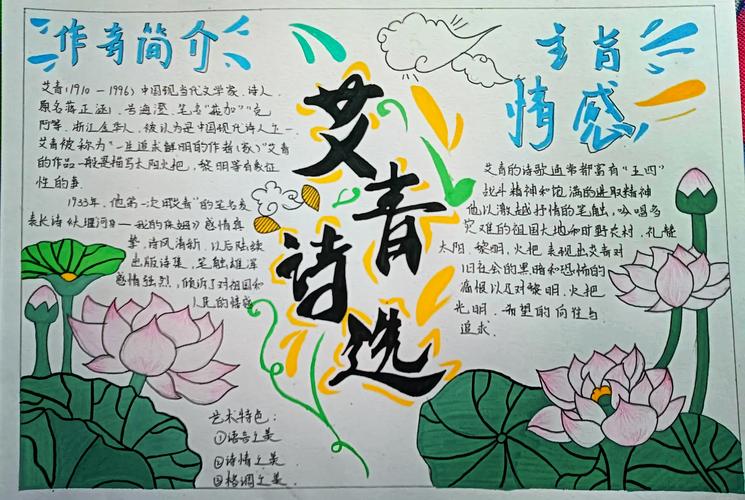 作者简介
艾青(1910-1996)中国现当代文学家、诗人
原名蒋正涵,号海澄,笔名"莪加""克
阿等,浙江金华人,被认为是中国现代诗人之一
艾青被称为"一生追求鲜明的作者(家)"艾青
的作品一般是描写太阳火把,黎明等有象征
性的事
1933年,他第一次用"艾青"的笔名发
表长诗《大堰河》—我的保姆》感情真
挚,诗风清新,以后陆续
出版诗集,笔触雄浑
感情强烈,倾诉了对祖国和
人民的情感
艾青诗选
艺术特色:
①语言之美
②诗情之美
③格调之美
主旨
情感
艾青的诗歌通常都富有"五四"
战斗精神和饱满的进取精神
他以激越抒情的笔触,吟唱多
灾难的祖国大地和旷野农村,礼赞
太阳、黎明、火把 表现出艾青对
旧社会的黑暗和恐怖的
痛恨以及对黎明、火把
光明、希望的向往与
追求.